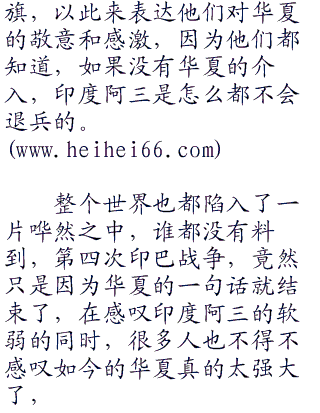 旗，以此来表达他们对华夏
的敬意和感激，因为他们都
知道，如果没有华夏的介
入，印度阿三是怎么都不会
退兵的。
(www.heihei66.com)
整个世界也都陷入了一
片哗然之中，谁都没有料
到，第四次印巴战争，竟然
只是因为华夏的一句话就结
束了，在感叹印度阿三的软
弱的同时，很多人也不得不
感叹如今的华夏真的太强大
了，